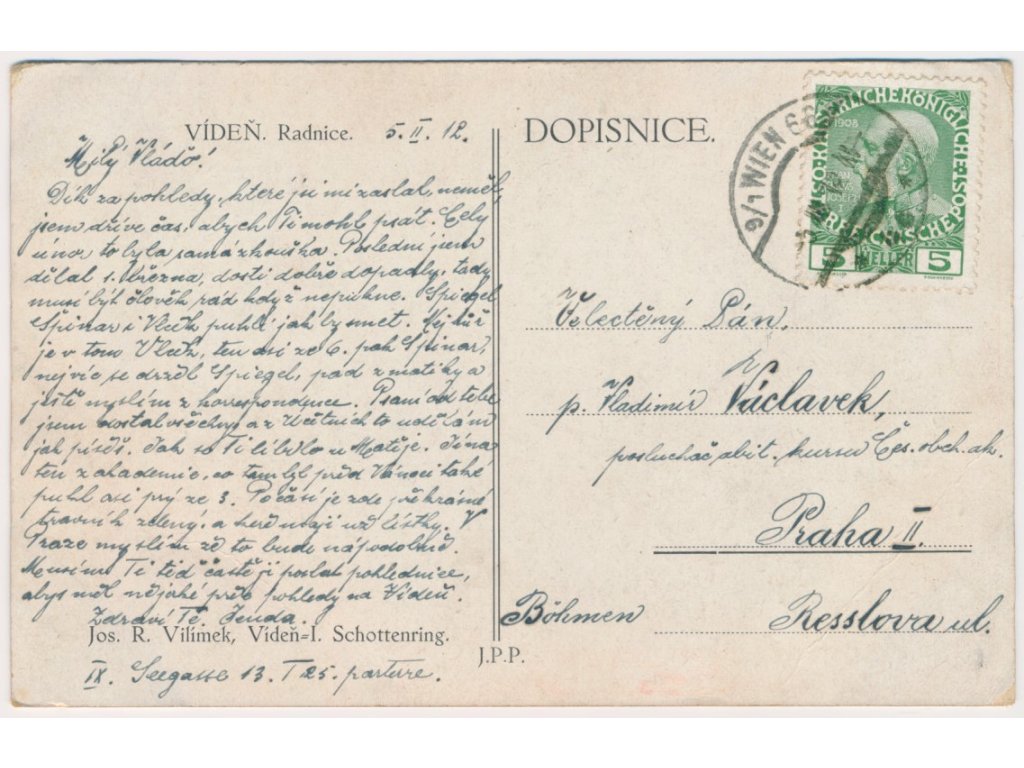 VÍDEŇ. Radnice. 5. II. 12.
Milý Vláďo!
Dík za pohledy, které jsi mi zaslal, neměl
jsem dříve čas, abych Ti mohl psát. Celý
únor to byla samá zkouška. Poslední jsem
dělal 1. března, dosti dobře dopadly, tady
musí být člověk rád když nepukne. Spiegel
Špinar i Vlček puhli jak by smet.
je v tom Vlček, ten asi ze 6. pak Špinar,
nejvíc se držel Spiegel, pad z matiky a
ještě myslím z korrespondence. Psaní od tebe
jsem dostal všechny a z Účetních to udělám
jak píšeš. Jak se Ti líbilo u Matěje. Jina
ten z akademie, co tam byl před Vánoci také
puhl asi prý ze 3. Počasí je zde překrásné
trávník zelený, a keře mají už lístky. V
Praze myslím zě to bude nápodobně.
Musím Ti teď častěji poslat pohlednice,
abys měl nějaké pohledy na Vídeň.
Zdraví Tě. Jenda.
Jos. R. Vilímek, Vídeň-I. Schottenring.
IX. Seegasse 13. T 25. parterre.
J.P.P.
DOPISNICE.
9/1 WIEN 66
K.K. ÖSTERREICHISCHE POST
1908
5 HELLER 5
Velectěný Pán,
p. Vladimír Václavek,
posluchač abit. kursu Čes. obch. ak.
Praha II.
Böhmen Resslova ul.